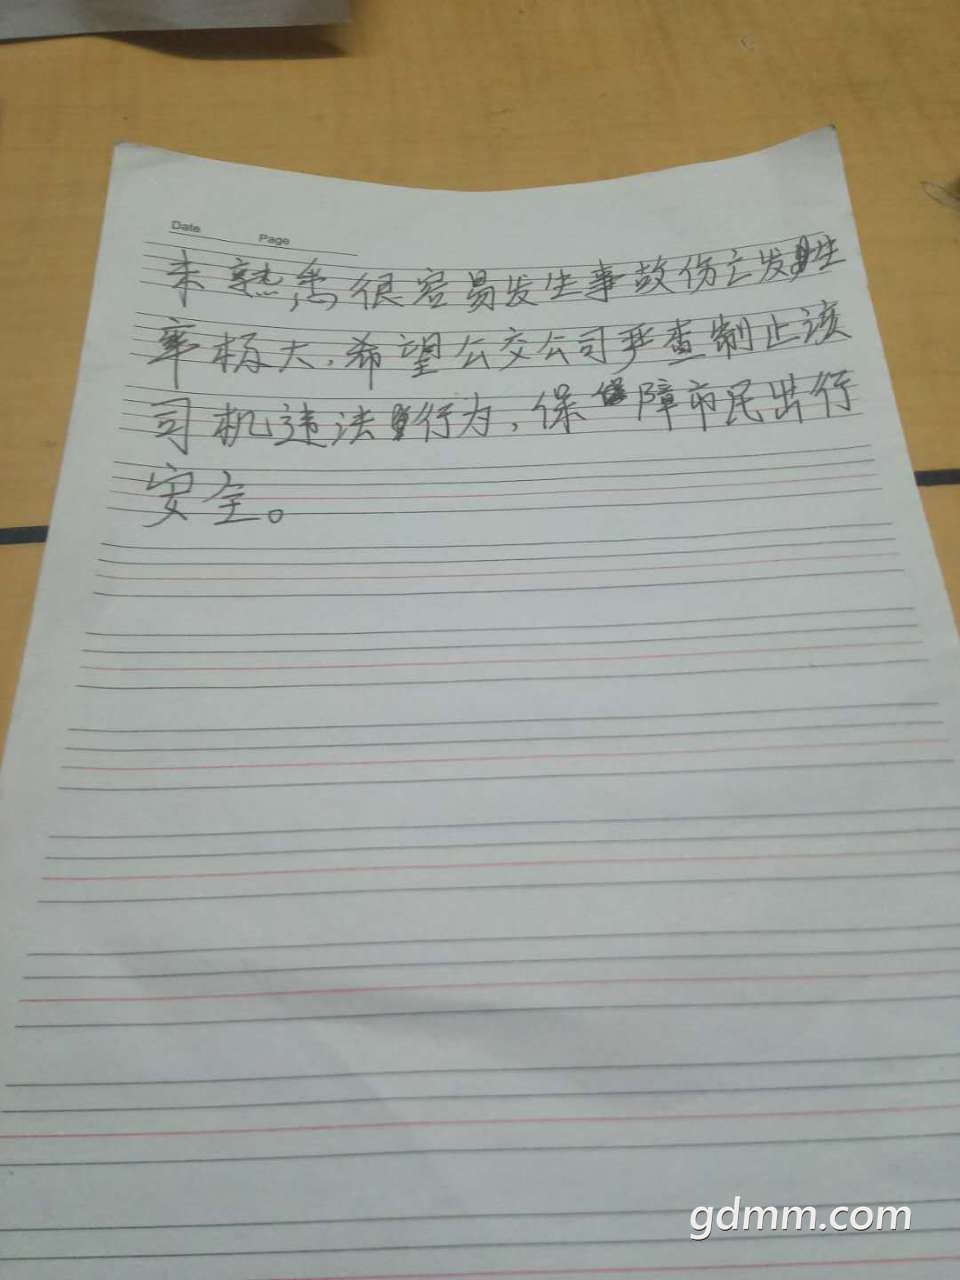 Date
Page
未熟悉,很容易发生事故伤亡发生
率极大,希望公交公司严查制止该
司机违法行为,保障市民出行
安全。
gdmm.com